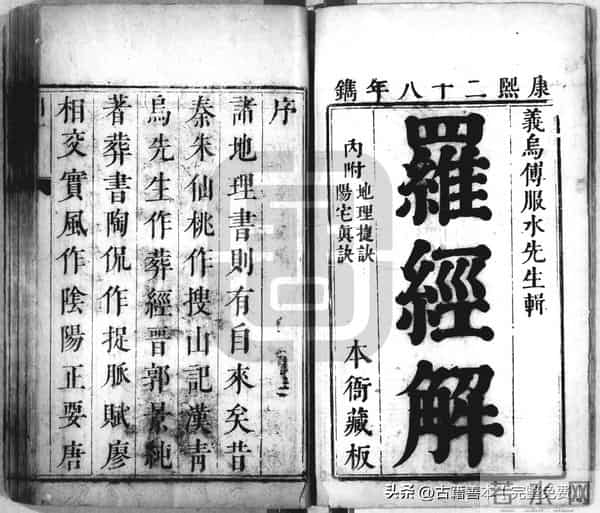 康熙二十八年鐫
義烏傅服水先生輯
羅經解
內附
地理捷訣
陽宅眞訣
本衙藏板
序
諸地理書則有自來矣昔
秦朱仙桃作搜山記漢青
烏先生作葬經晉郭景純
著葬書陶侃作捉脈賦廖
相交實風作陰陽正要唐
头条 @古籍善本(完整免费)